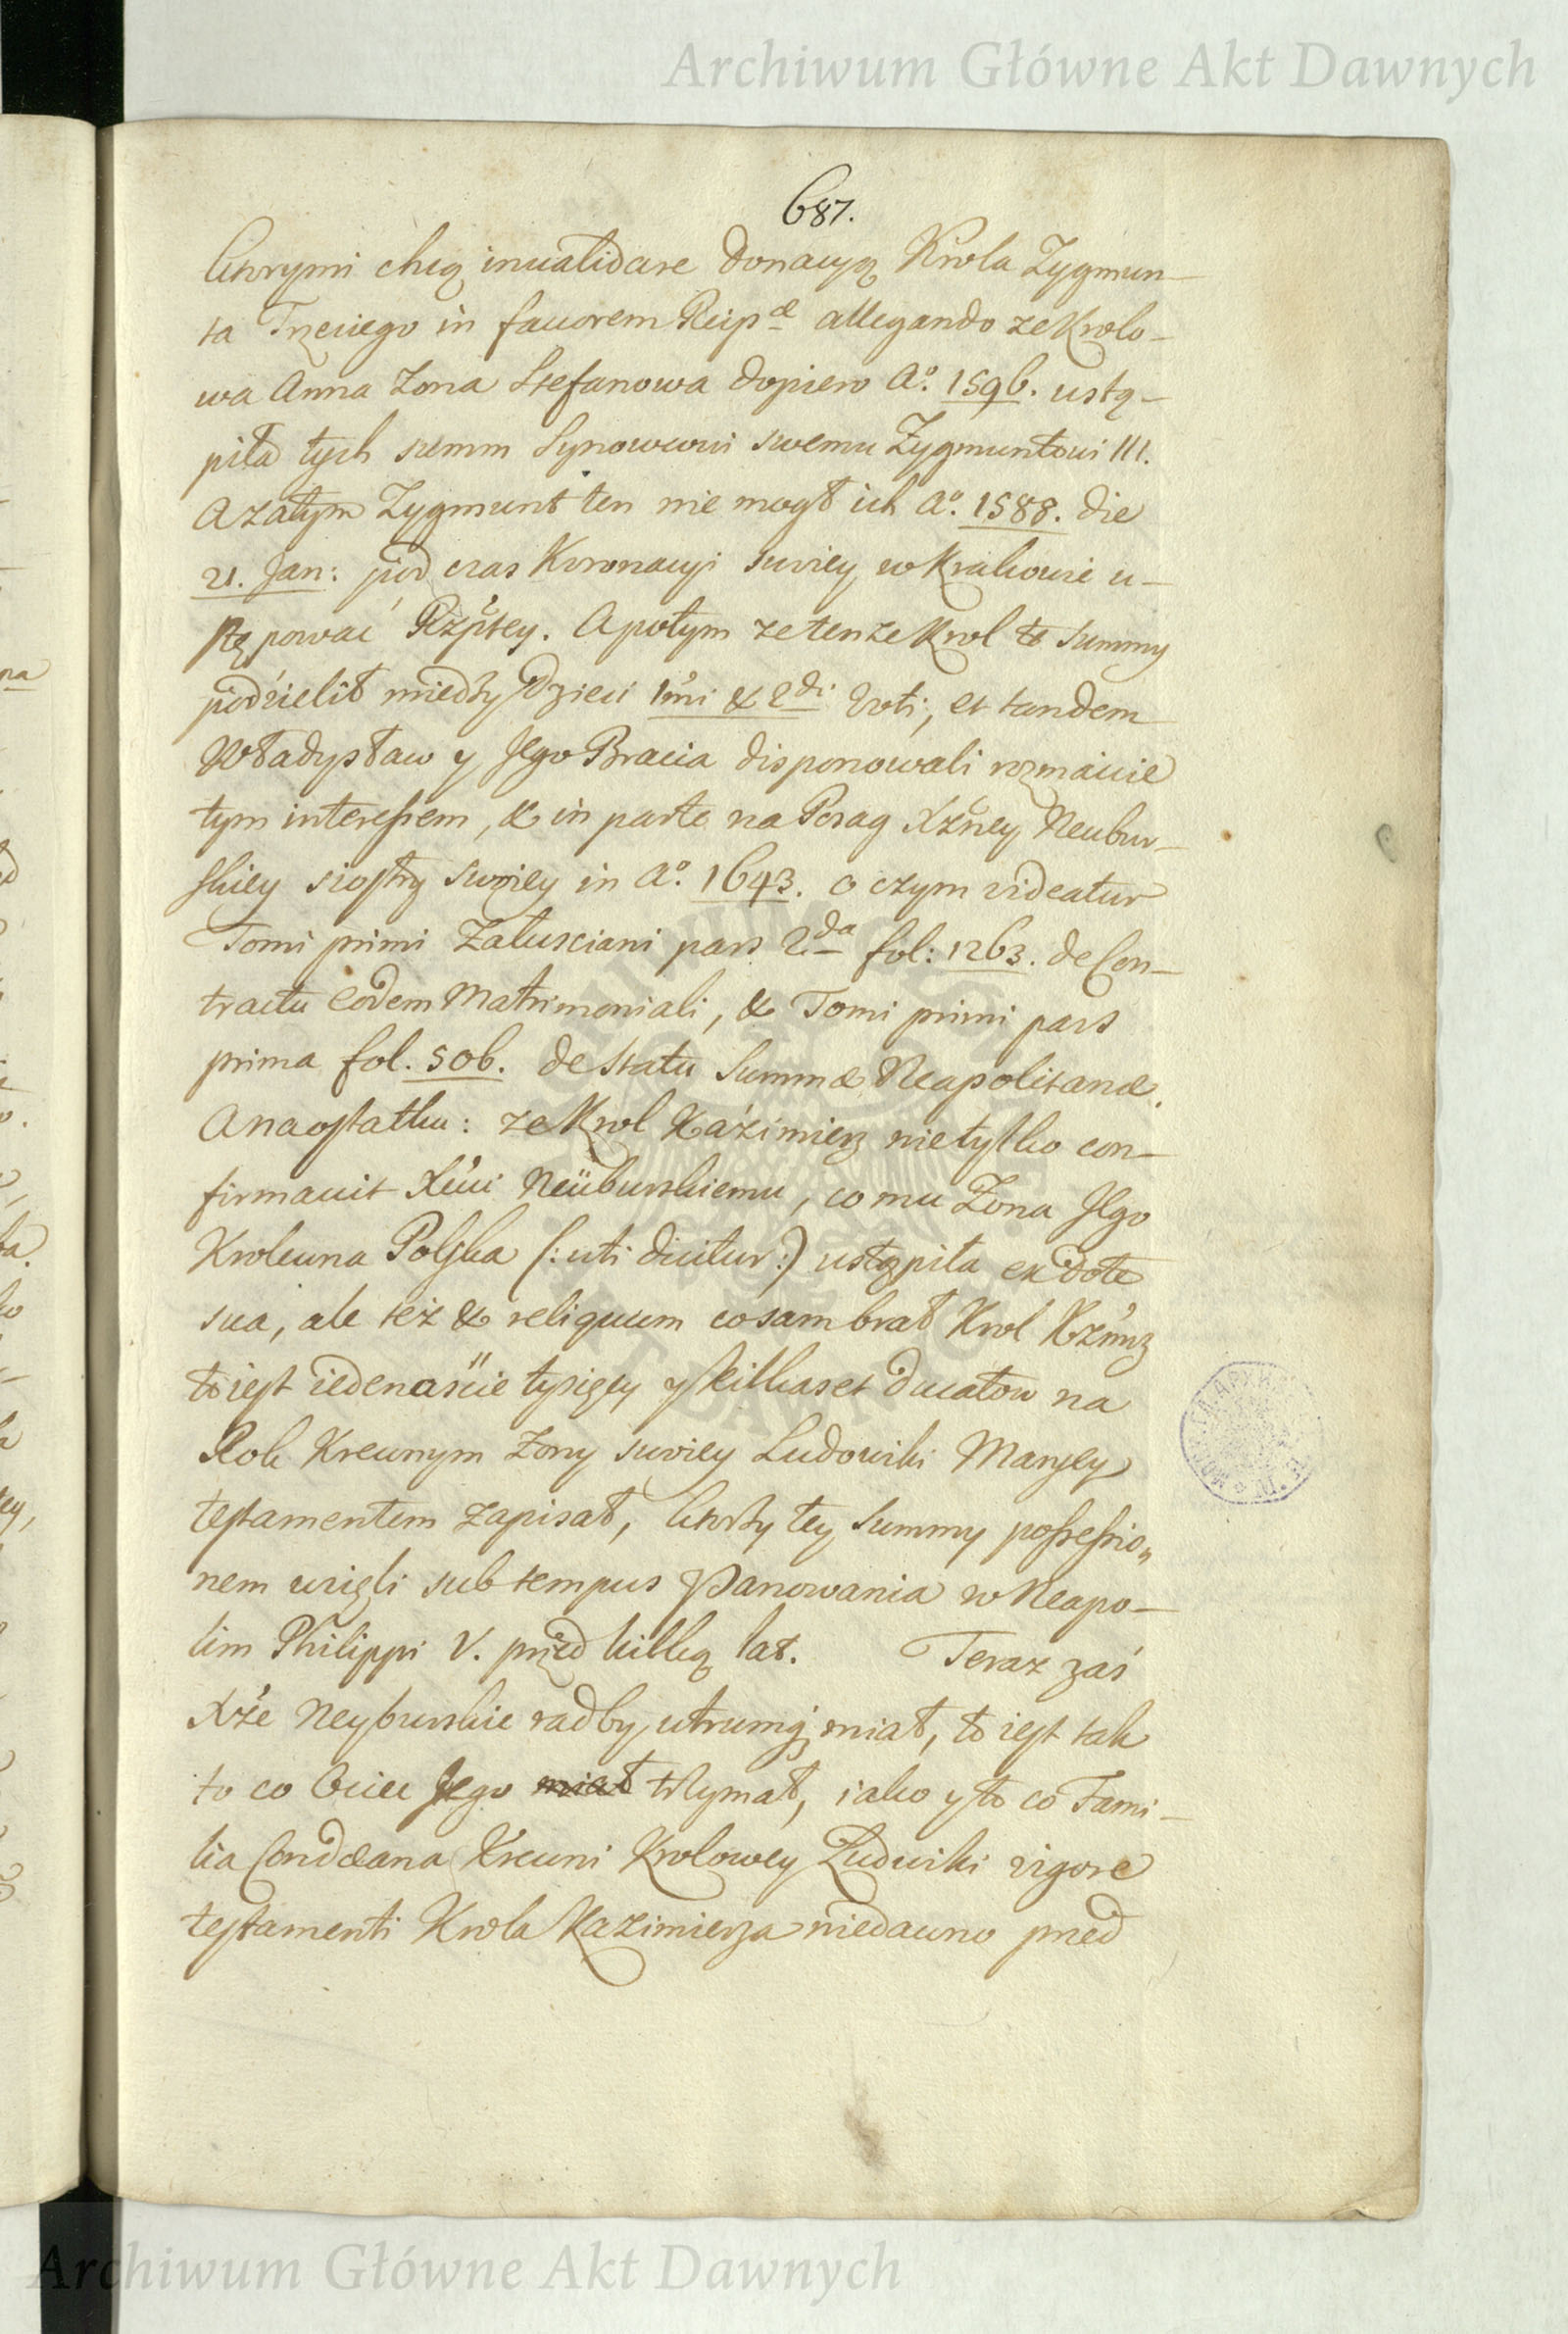 Archiwum Główne Akt Dawnych
687.
ktorymi chcą inualidare donacyą Krola Zygmun-
ta Trzeciego in fauorem Reipæ allegando ze Krolo-
wa Anna Zona Stefanowa dopiero Aº. 1596. ustą-
piła tych summ Synowcowi swemu Zygmuntowi III.
A zatym Zygmunt ten nie mogł ich Aº. 1588. die
21. Jan: pod czas Koronacyi swoiey w Krakowie u-
stępować Rzptey. A potym ze tenze Krol te Summy
podzielił między Dzieci 1mi & 2di Voti, et tandem
Władysław y Jego Bracia disponowali rozmaicie
tym interessem, & in parte na Posag Xżney Neubur-
skiey siostry swoiey in Aº. 1643. o czym videatur
Tomi primi Załusciani pars 2da fol: 1263. de Con-
tractu eodem Matrimoniali, & Tomi primi pars
prima fol. 506. de statu Summæ Neapolitanæ.
A naostatku: ze Krol Kaźimierz nie tylko con-
firmauit Xciu Neüburskiemu, co mu Zona Jego
Krolewna Polska (: uti dicitur :) ustąpiła ex dote
sua, ale też & reliquum co sam brał Krol Kźmrz
to iest iedenascie tysięcy y kilkaset ducatow na
Rok Krewnym Zony swoiey Ludowiki Maryey
testamentem zapisał, ktorzy tey Summy possessio„
nem wzięli sub tempus Panowania w Neapo-
lim Philippi V. przed kilką lat. Teraz zaś
Xże Neyburskie radby utrumq; miał, to iest tak
to co Ociec Jego miał trzymał, iako y to co Fami-
lia Condæana Krewni Krolowey Ludwiki vigore
testamenti Krola Kazimierza niedawno przed
Archiwum Główne Akt Dawnych